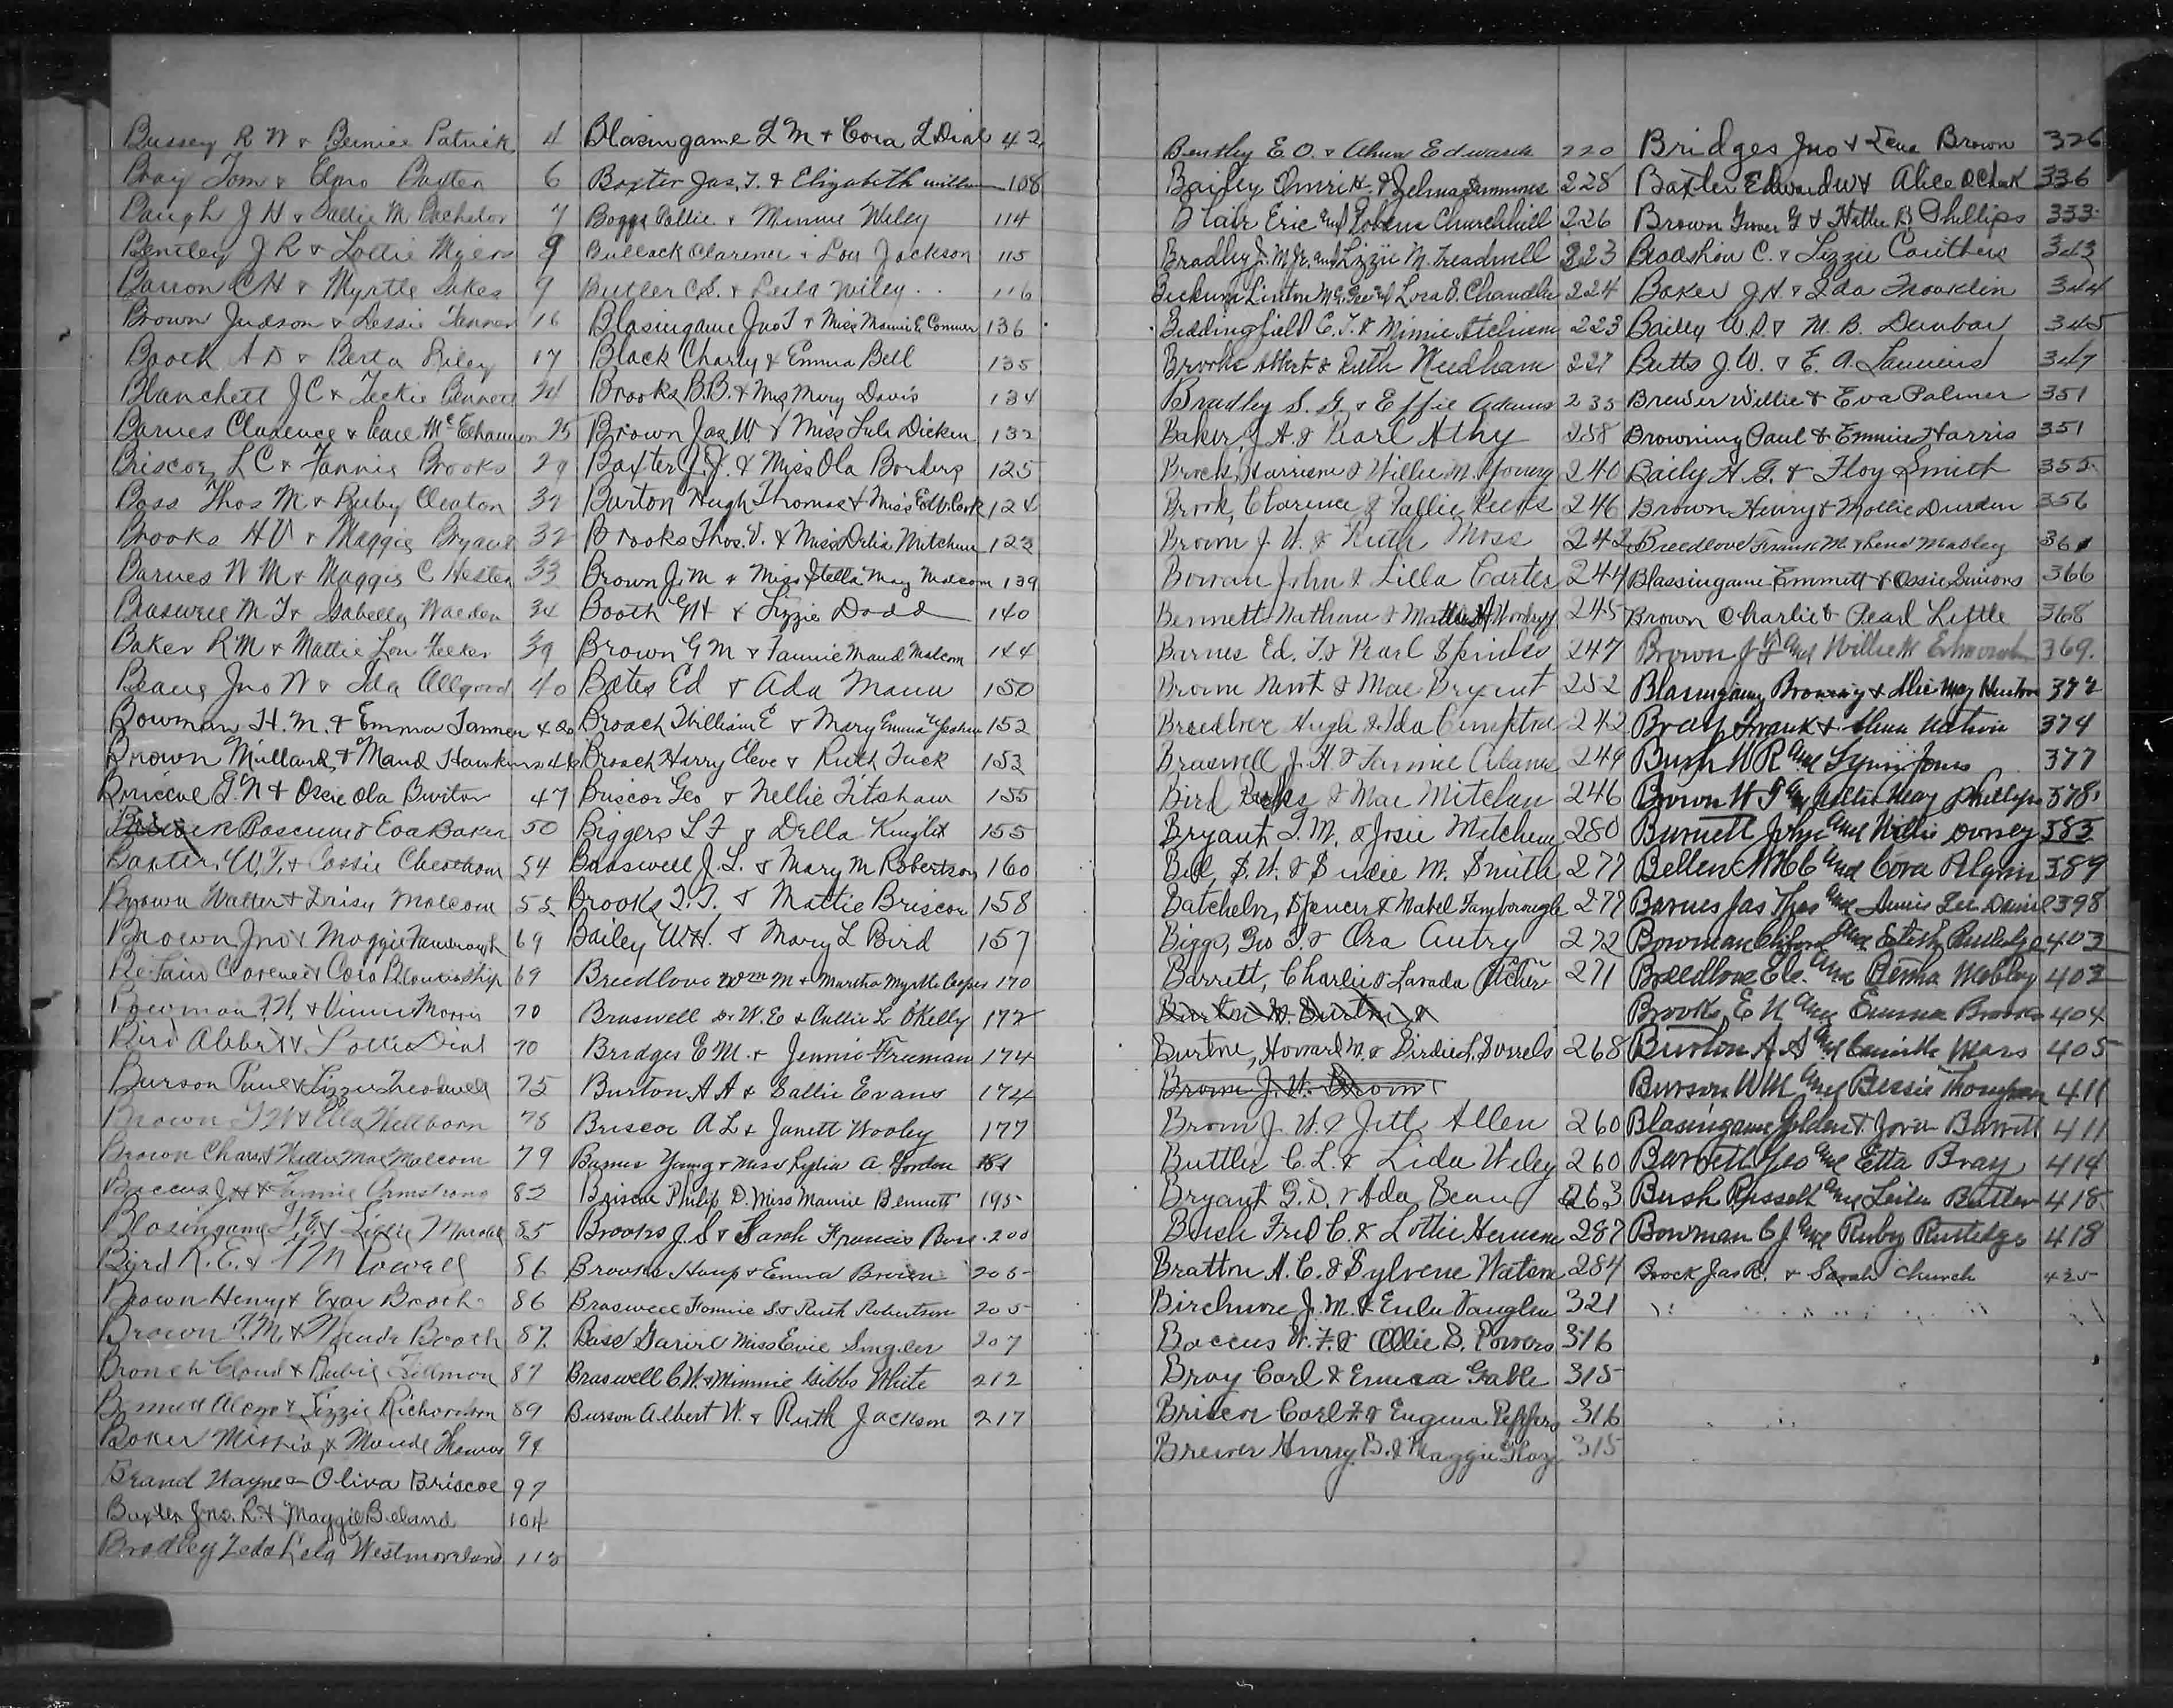 Bussey R W & Bernice Patrick 4
Bray Tom & Elmo Baxter 6
Baugh J H & Sallie M Bachelor 7
Bentley J R & Lottie Myers 9
Barron C H & Myrtle Sikes 9
Brown Judson & Lessie Tanner 16
Booth A D & Berta Riley 17
Blanchett J C & Teckie Bennett 24
Barnes Clarence & Pearl McElhannon 25
Briscoe L C & Fannie Brooks 29
Boss Thos M & Ruby Cleaton 32
Brooks H V & Maggie Bryant 32
Barnes W M & Maggie C Hester 33
Braswell M T & Isabella Walden 34
Baker R M & Mattie Lou Peeler 39
Beane Jno W & Ida Allgood 40
Bowman H. M. & Emma Tanner 42
Brown Millard & Maud Hawkins 46
Briscoe T. N & Ossie Ola Burton 47
Eva Baker 50
Baxter W. T. & Cassie Cheatham 54
Brown Walter & Daisy Malcom 55
Brown Jno & Maggie 69
Clarence & Cora 69
Bowman F. H. & Morris 70
Bird Albert & Lottie Dial 70
Burson Paul & Lizzie Treadwell 75
Brown T W & Ella Wellborn 78
Brown Chas & Willie Mae Malcom 79
Baccus J H & Fannie Armstrong 82
Blasingame & Lizzie 85
Byrd R. E. & Powell 86
Brown Henry & Booth 86
Brown T. M & Booth 87
Broach Cloud & Rubie Tillman 87
Bennett & Lizzie Richardson 89
Baker & Maude Thomas 94
Brand Wayne & Oliva Briscoe 97
Baxter Jno. R. & Maggie Beland 104
Bradley Zed & Lela Westmoreland 113
Blasingame L M & Cora L Dial 42
Baxter Jas, T. & Elizabeth 108
Boggs Pallie & Minnie Wiley 114
Bullock Clarence & Lou Jackson 115
Butler C. S. & Leila Wiley 116
Blasingame Jno T & Miss Mamie E Conner 136
Black Charly & Emma Bell 135
Brooks B. B. & Mrs Mary Davis 134
Brown Jas. W & Miss Lula Dicken 132
Baxter J. J. & Miss Ola Borders 125
Burton Hugh Thomas & Miss Edb. Cook 124
Brooks Thos. V. & Miss Delia Mitchum 123
Brown J. M & Miss Stella May Malcom 139
Booth G H & Lizzie Dodd 140
Brown G M & Fannie Maud Malcom 144
Bates Ed & Ada Mann 150
Broach William E & Mary Emma 152
Broach Harry Cleve & Ruth Tuck 153
Briscoe Geo & Nellie Fitshaw 155
Biggers L F & Della Knight 155
Braswell J. L. & Mary M Robertson 160
Brooks T. T. & Mattie Briscoe 158
Bailey W. H. & Mary L Bird 157
Breedlove Wm M & Martha Myrtle Cooper 170
Braswell Dr W. E & Callie L O'Kelly 172
Bridges E M. & Jennie Freeman 174
Burton A A & Sallie Evans 174
Briscoe A L & Janett Wooley 177
Barnes Young & Miss Lydia A. Gordon 181
Briscoe Philip D. Miss Mamie Bennett 195
Brooks J. S & Sarah Francis 200
Brooks Houp & Emma Brown 205
Braswell Fannie S & Ruth Robertson 205
Miss Evie Singler 207
Braswell C W. & Minnie Gibbs White 212
Burson Albert W. & Ruth Jackson 217
Bentley E. O. & Alma Edwards 220
Bailey Omri K. & Zelma Simmons 228
Blair Eric and Churchhill 226
Bradley J. M Jr. and Lizzie M. Treadwell 223
Linton and Lora S. Chandler 224
Beddingfield C. T. & Minnie Atchison 223
Brooks Albert & Ruth Needham 227
Bradley S. G. & Effie Adams 235
Baker, J. A. & Pearl Athy 258
Brock, Harrison & Willie M. Young 240
Brook, Clarence & Sallie 246
Brown J. W. & Ruth Moss 242
Bowan John & Lilla Carter 244
Bennett Nathan & 245
Barnes Ed. T. & Pearl 247
Brown Newt & Mae Bryant 252
Breedlove Hugh & Ida 242
Braswell J. H. & Fannie Adams 249
Bird & Mae Mitcham 246
Bryant T. M. & Josie Mitchem 280
Bell, S. W. & Susie M. Smith 277
Batchelor, Spencer & Mabel Famborough 277
Biggs, Geo T. & Ora Autry 272
Barrett, Charlie & Lavada 271
Burton, Howard M. & Birdie L. Sorrels 268
Brown J. W. Brown
Brown J. W. & Jett Allen 260
Buttler C. L. & Lida Wiley 260
Bryant G. D. & Ada Bean 263
Bush Fred C. & Lottie 287
Bratton A. C. & Sylvene Watson 284
Birchmore J. M. & Eula Vaughn 321
Baccus W. F. & Ollie S. Powers 316
Bray Carl & Emma Gable 315
Briscoe Carl F. & Eugenia Peppers 316
Brewer Henry B. & Maggie 315
Bridges Jno & Lena Brown 326
Baxter Edward W & Alice 336
Brown Grover G & Hattie B. Phillips 333
Bradshaw C. & Lizzie Carithers 343
Baker J. H. & Ida Franklin 344
Bailey W. D. & M. B. Dunbar 345
Butts J. W. & E. A. 347
Brewer Willie & Eva Palmer 351
Browning Paul & Emmie Harris 351
Baily H. G. & Floy Smith 355
Brown Henry & Mollie Durden 356
Breedlove Frank M. & Mabley 361
Blassingame Emmett & Ossie Simons 366
Brown Charlie & Pearl Little 368
Brown J F and Willie M 369.
Blasingame & Alic May Hinton 372
Bray Frank & 374
Bush W R and Jones 377
Brown W T and May Phillips 378
Burnett John and Willie Dorsey 383
Bellen and Cora Pilgrim 389
Barnes Jas Thos and Annie Lee Daniel 398
Bowman and Rutledge 403
Breedlove and Mobley 403
Brooks, E N and Emma Brooks 404
Burton A A and 405
Burson W M and Bessie Thompson 411
Blasingame Golden & Barrett 411
Barnett Geo and Etta Bray 414
Bush Russell and Leila Butler 418
Bowman C J and Ruby Rutledge 418
Brock Jas R. & Sarah Church 425